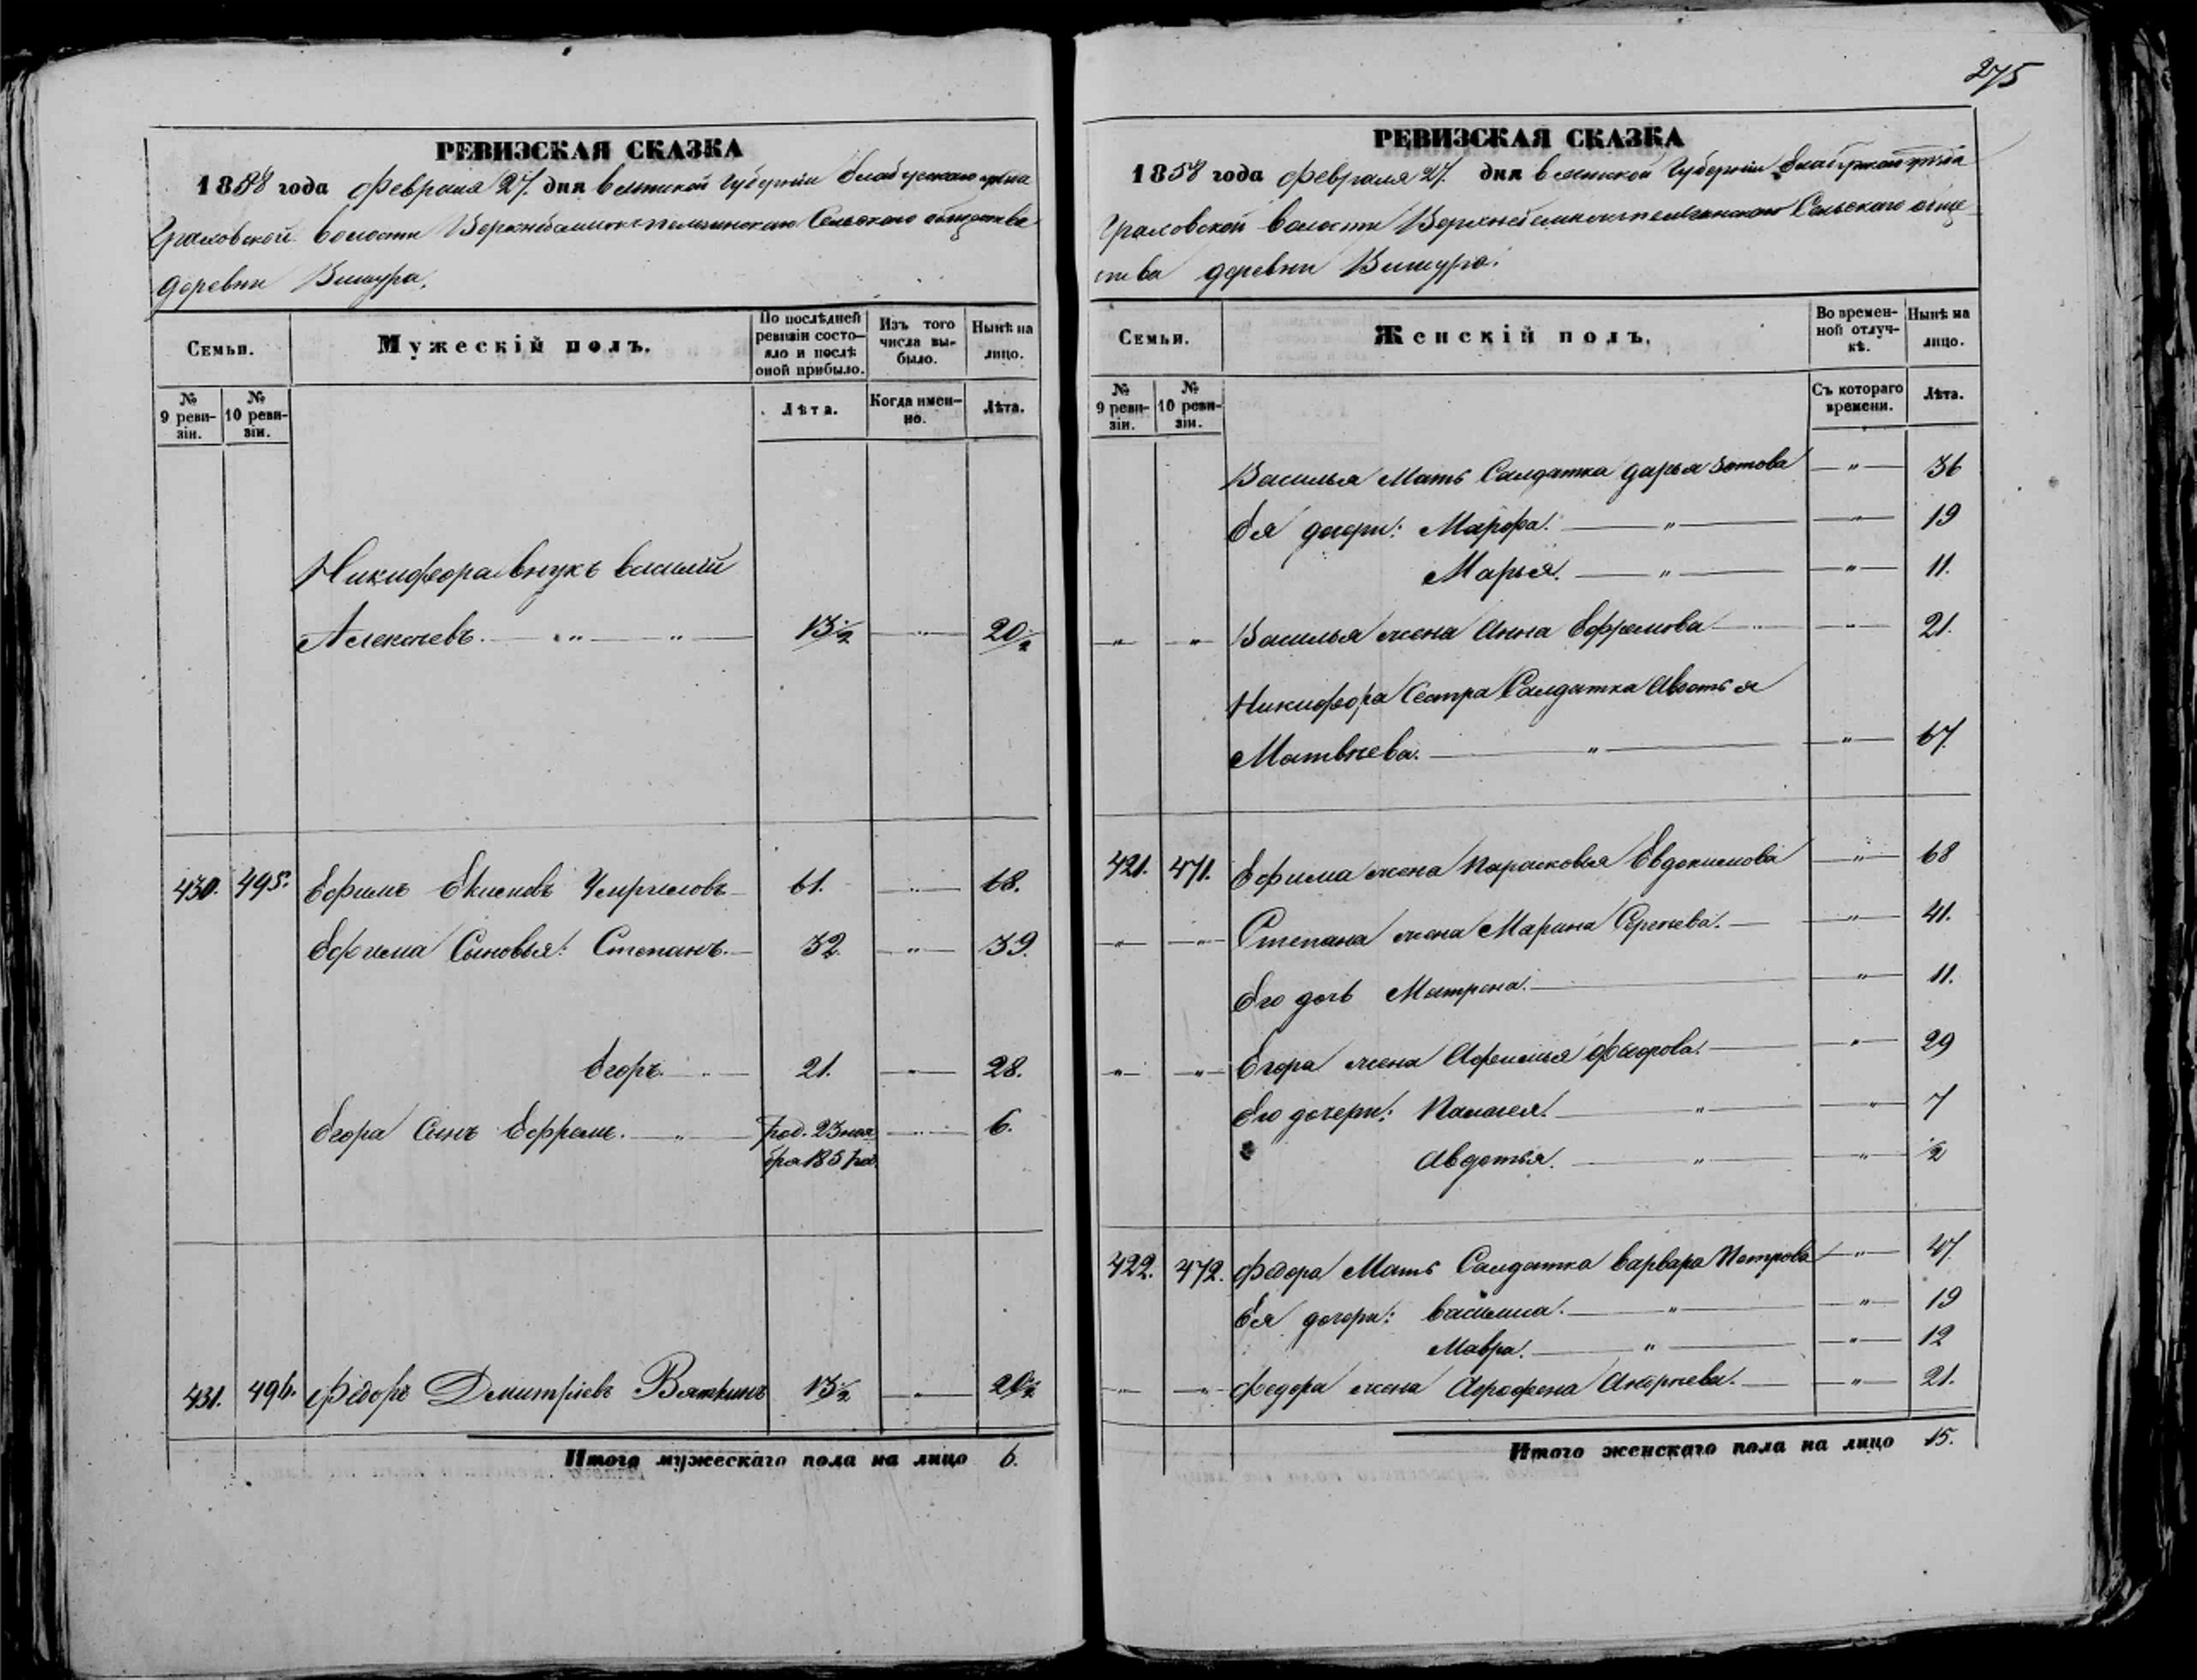 275
РЕВИЗСКАЯ СКАЗКА
1858 года февраля 27. дня Вятской губернии Елабужского уезда
Граховской волости Сельского общества
деревни Вишура.
Семьи.
Мужескій полъ.
По послѣдней ревизіи состояло и послѣ оной прибыло.
Изъ того числа выбыло.
Нынѣ на лицо.
№ 9 ревизіи.
№ 10 ревизіи.
Лѣта.
Когда именно.
Лѣта.
Никифора внукъ василій
Алексѣевъ. — „ — „ — 13½ — „ — 20½
430. 495. Ефимъ Екимовъ 61. — „ — 68.
Ефима Сыновья: Степанъ. — 32. — „ — 39.
Егоръ. — „ — 21. — „ — 28.
Егора Сынъ Ефремъ. — „ — род. 23 ноя — „ — 6.
бря 1851 год
431. 496. Федоръ Дмитріевъ Вяткинъ 13½ — „ — 20½
Итого мужескаго пола на лицо 6.
РЕВИЗСКАЯ СКАЗКА
1858 года февраля 27. дня Вятской губерніи Елабужского уезда
Граховской волости Сельскаго обще-
ства деревни Вишура.
Семьи.
Женскій полъ.
Во временной отлучкѣ.
Нынѣ на лицо.
№ 9 ревизіи.
№ 10 ревизіи.
Съ котораго времени.
Лѣта.
Василья Мать Салдатка дарья Зотова — „ — 36
Ея дочери: Марфа. — „ — — „ — 19
Марья. — „ — — „ — 11.
„ „ Василья жена Анна Ефремова — „ — 21.
Никифора Сестра Салдатка Авдотья
Матвѣева. — „ — — „ — 67.
421. 471. Ефима жена Парасковья Евдокимова — „ — 68
„ „ Степана жена Марина Сергѣева. — „ — 41.
Его дочь Матрена. — „ — 11.
„ „ Егора жена Афимья Федорова. — „ — 29
Его дочери: Палагея. — „ — — „ — 7
Авдотья. — „ — — „ — ½
422. 472. Федора Мать Салдатка варвара Петрова — „ — 47.
Ея дочери: василиса. — „ — — „ — 19
Мавра. — „ — — „ — 12
„ „ Федора жена Аграфена Андреева. — „ — 21.
Итого женскаго пола на лицо 15.